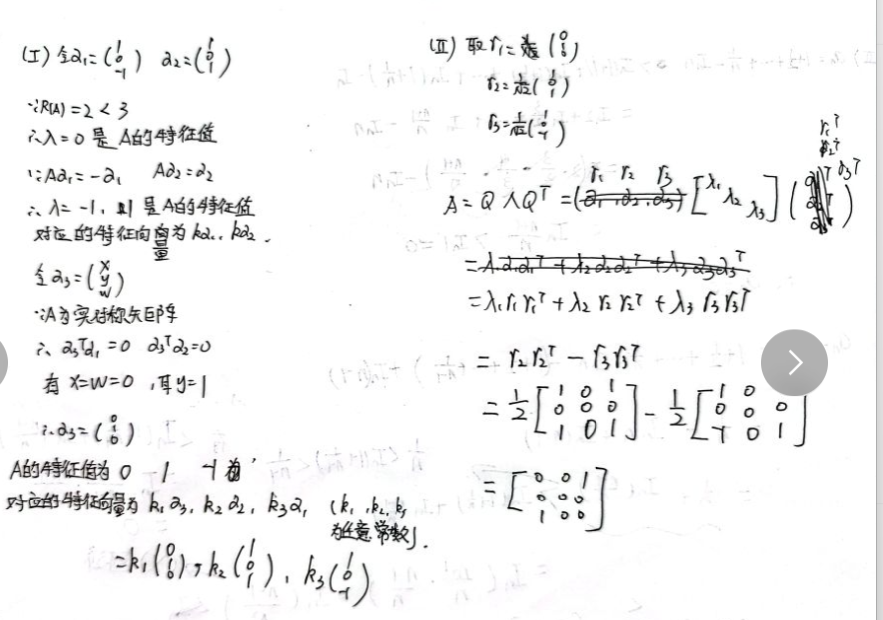 (I) 令α₁=(1 0 -1) α₂=(1 0 1)
∵R(A)=2<3
∴λ=0 是 A的特征值
∵Aα₁=-α₁ Aα₂=α₂
∴λ=-1, 1 是A的特征值
对应的特征向量为kα₁, kα₂.
令α₃=(x y w)
∵A为实对称矩阵
∴α₃ᵀα₁=0 α₃ᵀα₂=0
有 x=w=0, 取y=1
∴α₃=(0 1 0)
A的特征值为 0 1 -1
对应的特征向量为 k₁α₃, k₂α₂, k₃α₁ (k₁,k₂,k₃
为任意常数).
=k₁(0 1 0), k₂(1 0 1), k₃(1 0 -1)
(II) 取r₁=(0 1 0)
r₂=1/√2(1 0 1)
r₃=1/√2(1 0 -1)
r₁ r₂ r₃
A=QΛQᵀ=(α₁,α₂,α₃)[λ₁ λ₂ λ₃](r₁ᵀ r₂ᵀ r₃ᵀ)
=λ₁α₁α₁ᵀ+λ₂α₂α₂ᵀ+λ₃α₃α₃ᵀ
=λ₁r₁r₁ᵀ+λ₂r₂r₂ᵀ+λ₃r₃r₃ᵀ
=r₂r₂ᵀ-r₃r₃ᵀ
=1/2[1 0 1
0 0 0
1 0 1]-1/2[1 0
0 0 0
-1 0 1]
=[0 0 1
0 0 0
1 0 0]